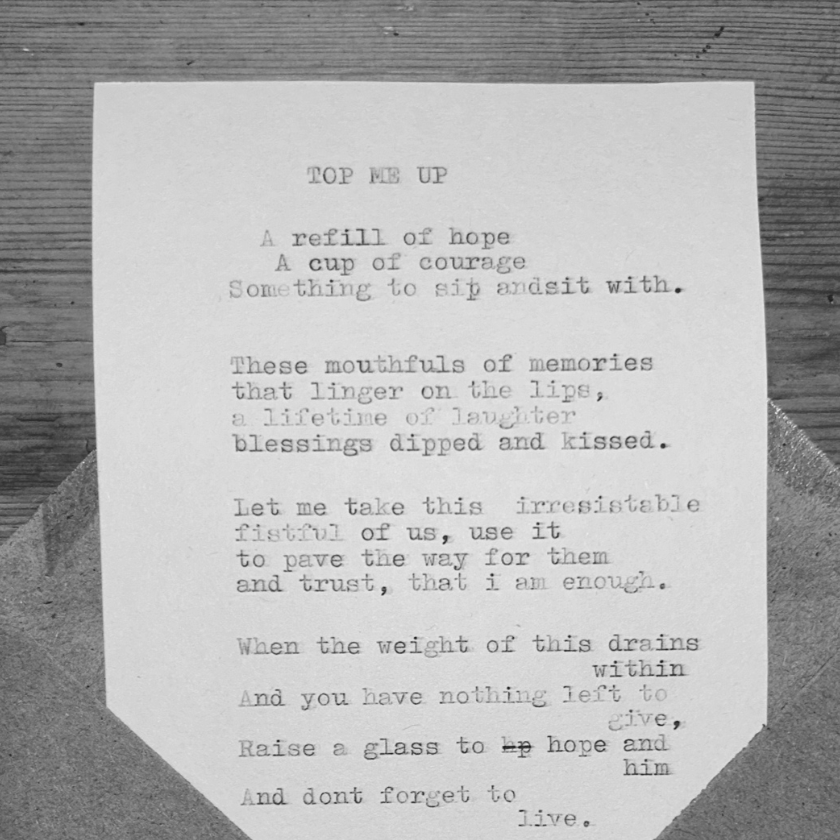 TOP ME UP
A refill of hope
A cup of courage
Something to sip andsit with.
These mouthfuls of memories
that linger on the lips,
a lifetime of laughter
blessings dipped and kissed.
Let me take this irresistable
fistful of us, use it
to pave the way for them
and trust, that i am enough.
When the weight of this drains
within
And you have nothing left to
give,
Raise a glass to hp hope and
him
And dont forget to
live.